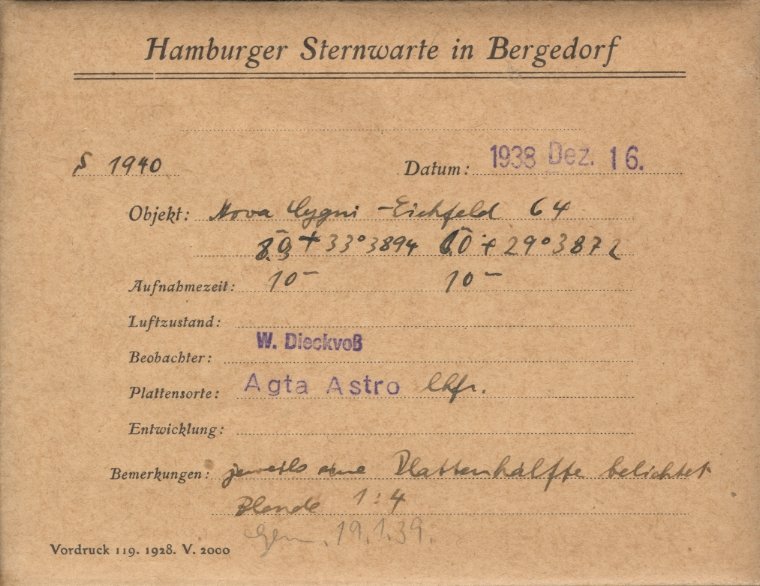 Hamburger Sternwarte in Bergedorf
S 1940 Datum: 1938 Dez. 16.
Objekt: Nova Cygni - Eichfeld 64
+33°3894 +29°3872
Aufnahmezeit: 10 – 10 –
Luftzustand:
Beobachter: W. Dieckvoß
Plattensorte: Agfa Astro
Entwicklung:
Bemerkungen: jeweils eine Plattenhälfte belichtet
Blende 1:4
19.1.39.
Vordruck 119. 1928. V. 2000